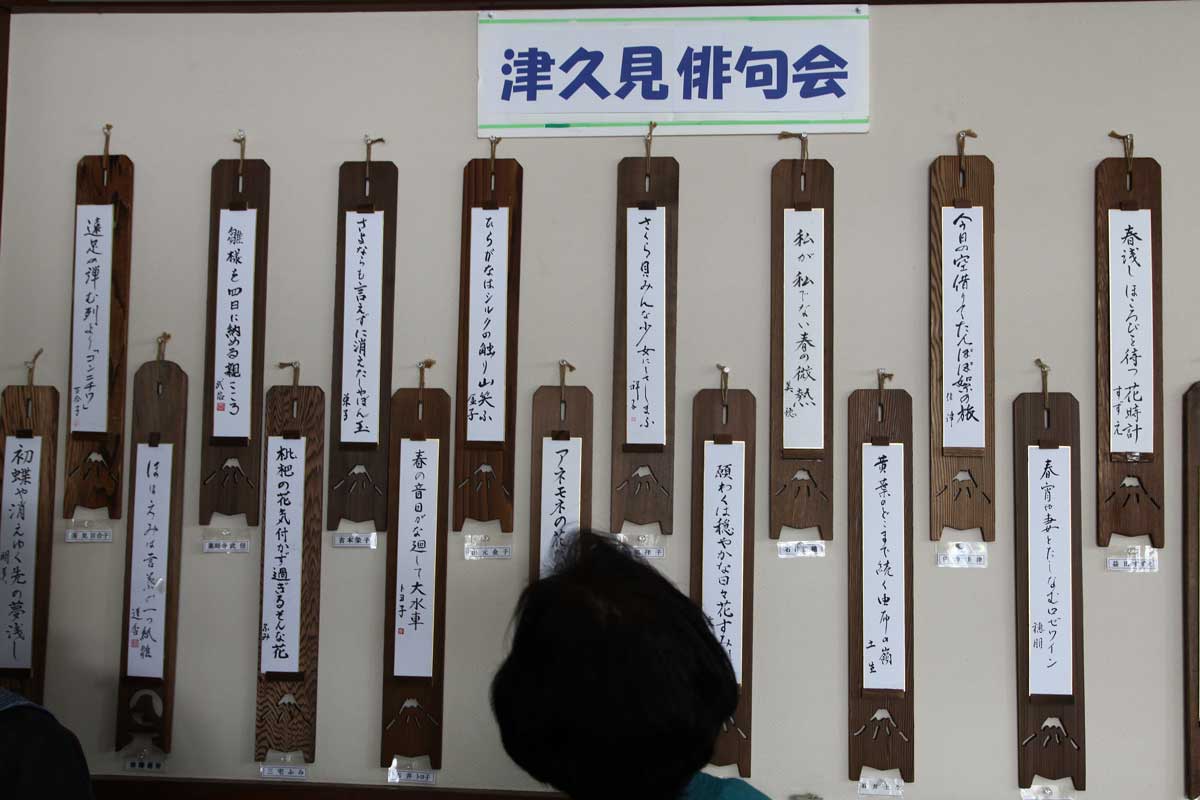 津久見俳句会
春浅しほころびを待つ花時計
すずえ
今日の空借りてたんぽぽ絮の旅
佳津
私が私でない春の微熱
美穂
さくら貝みんな少女にしてしまふ
祥子
ひらがなはシルクの触り山笑ふ
さよならも言えずに消えたしゃぼん玉
栄子
雛様を四日に納める親ごころ
武信
遠足の弾む列より「コンニチワ」
百合子
春宵や妻とたしなむロゼワイン
穂朋
黄葉のどこまで続く由布の嶺
土生
願わくは穏やかな日々花すみ
アネモネの花
春の音目がな廻して大水車
トヨ子
枇杷の花気付かず過ぎるそんな花
ふみ
ほほえみは
一つ紙雛
初蝶や消えゆく先の夢浅し
吉本栄子
三宅ふみ